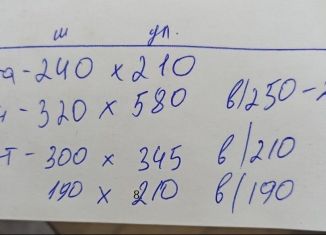 ш дл.
а - 240 x 210
- 320 x 580 в/250 -
т - 300 x 345 в/210
190 x 210 в/190